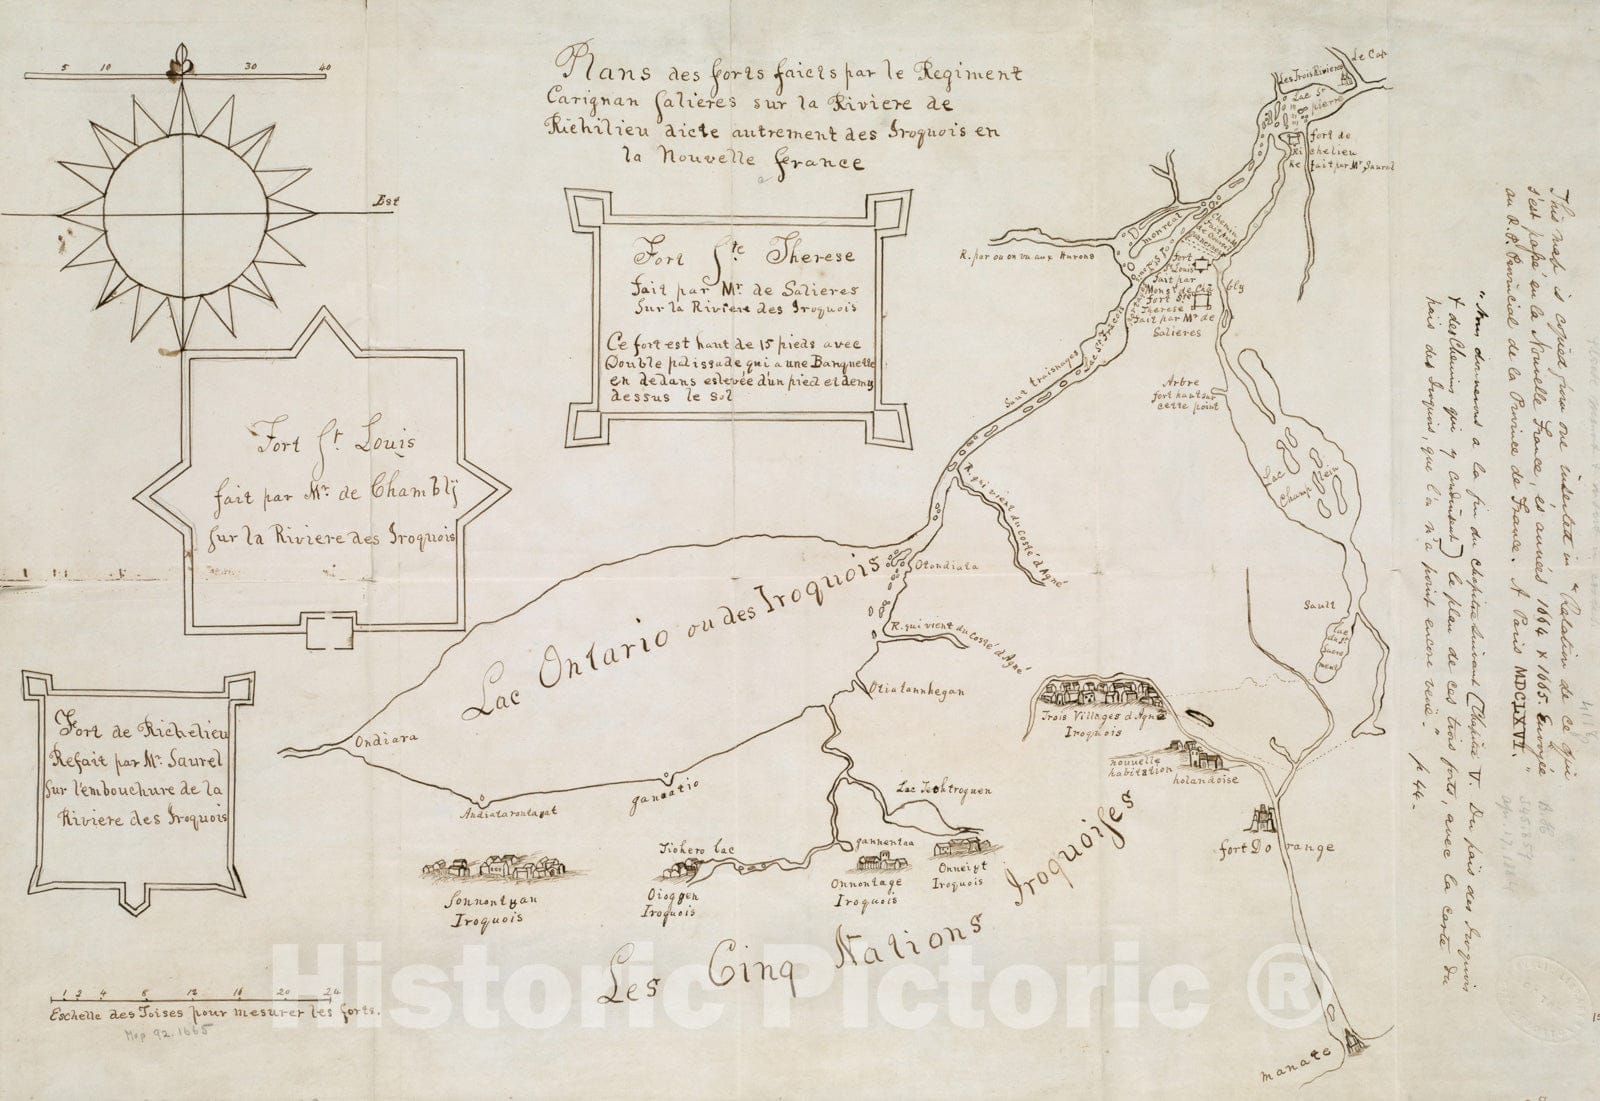 5 10 30 40
Plans des forts faicts par le Regiment
Carignan Salieres sur la Riviere de
Richilieu dicte autrement des Iroquois en
la Nouvelle france
Est
Fort Ste Therese
fait par Mr. de Salieres
Sur la Riviere des Iroquois
Ce fort est haut de 15 pieds avec
Double palissade qui a une Banquette
en dedans eslevée d'un pied et demy
dessus le sol
Fort St Louis
fait par Mr. de Chamblÿ
sur la Riviere des Iroquois
Fort de Richelieu
Refait par Mr. Saurel
Sur l'embouchure de la
Riviere des Iroquois
1 2 4 8 12 16 20 24
Eschelle des Toises pour mesurer les forts.
Map 92.1665
Le Cap
Les Trois Rivieres
Lac St
pierre
fort de
Richelieu
Refait par Mr. Saurel
monreal
R. par ou on va aux Hurons
fort
St Louis
fait par
Monsr de Chambly
Fort Ste
Therese
fait par Mr de
Salieres
Saut traisnages
Arbre
fort haut sur
cette point
Lac
Champlein
R. qui vient du costé d'Agné
Otondiata
Lac Ontario ou des Iroquois
R. qui vient du costé d'Agné
Otiatannhegan
Sault
Lac
du St
Sacre
ment
Trois Villages d'Agné
Iroquois
nouvelle
habitation
holandoise
Ondiara
Andiatarontagat
ganaatio
Lac Techtroguen
fort Do range
Tiohero lac
gannentaa
Sonnontuan
Iroquois
Oioguen
Iroquois
Onnontage
Iroquois
Onneiyt
Iroquois
Les Cinq Nations Iroquoises
manate
This map is copied from one inserted in "Relation de ce qui
s'est passé en la Nouvelle France, es années 1664 & 1665. Envoyée
au R. P. Provincial de la Province de France. A Paris MDCLXVI.
"Nous donnerons a la fin du chapitre suivant (Chapitre V. Du pais des Iroquois
& des Chemins qui y conduisent) le plan de ces trois forts, avec la carte du
pais des Iroquois, que l'on n'a point encore veuë." p. 44.
Historic Pictoric ®